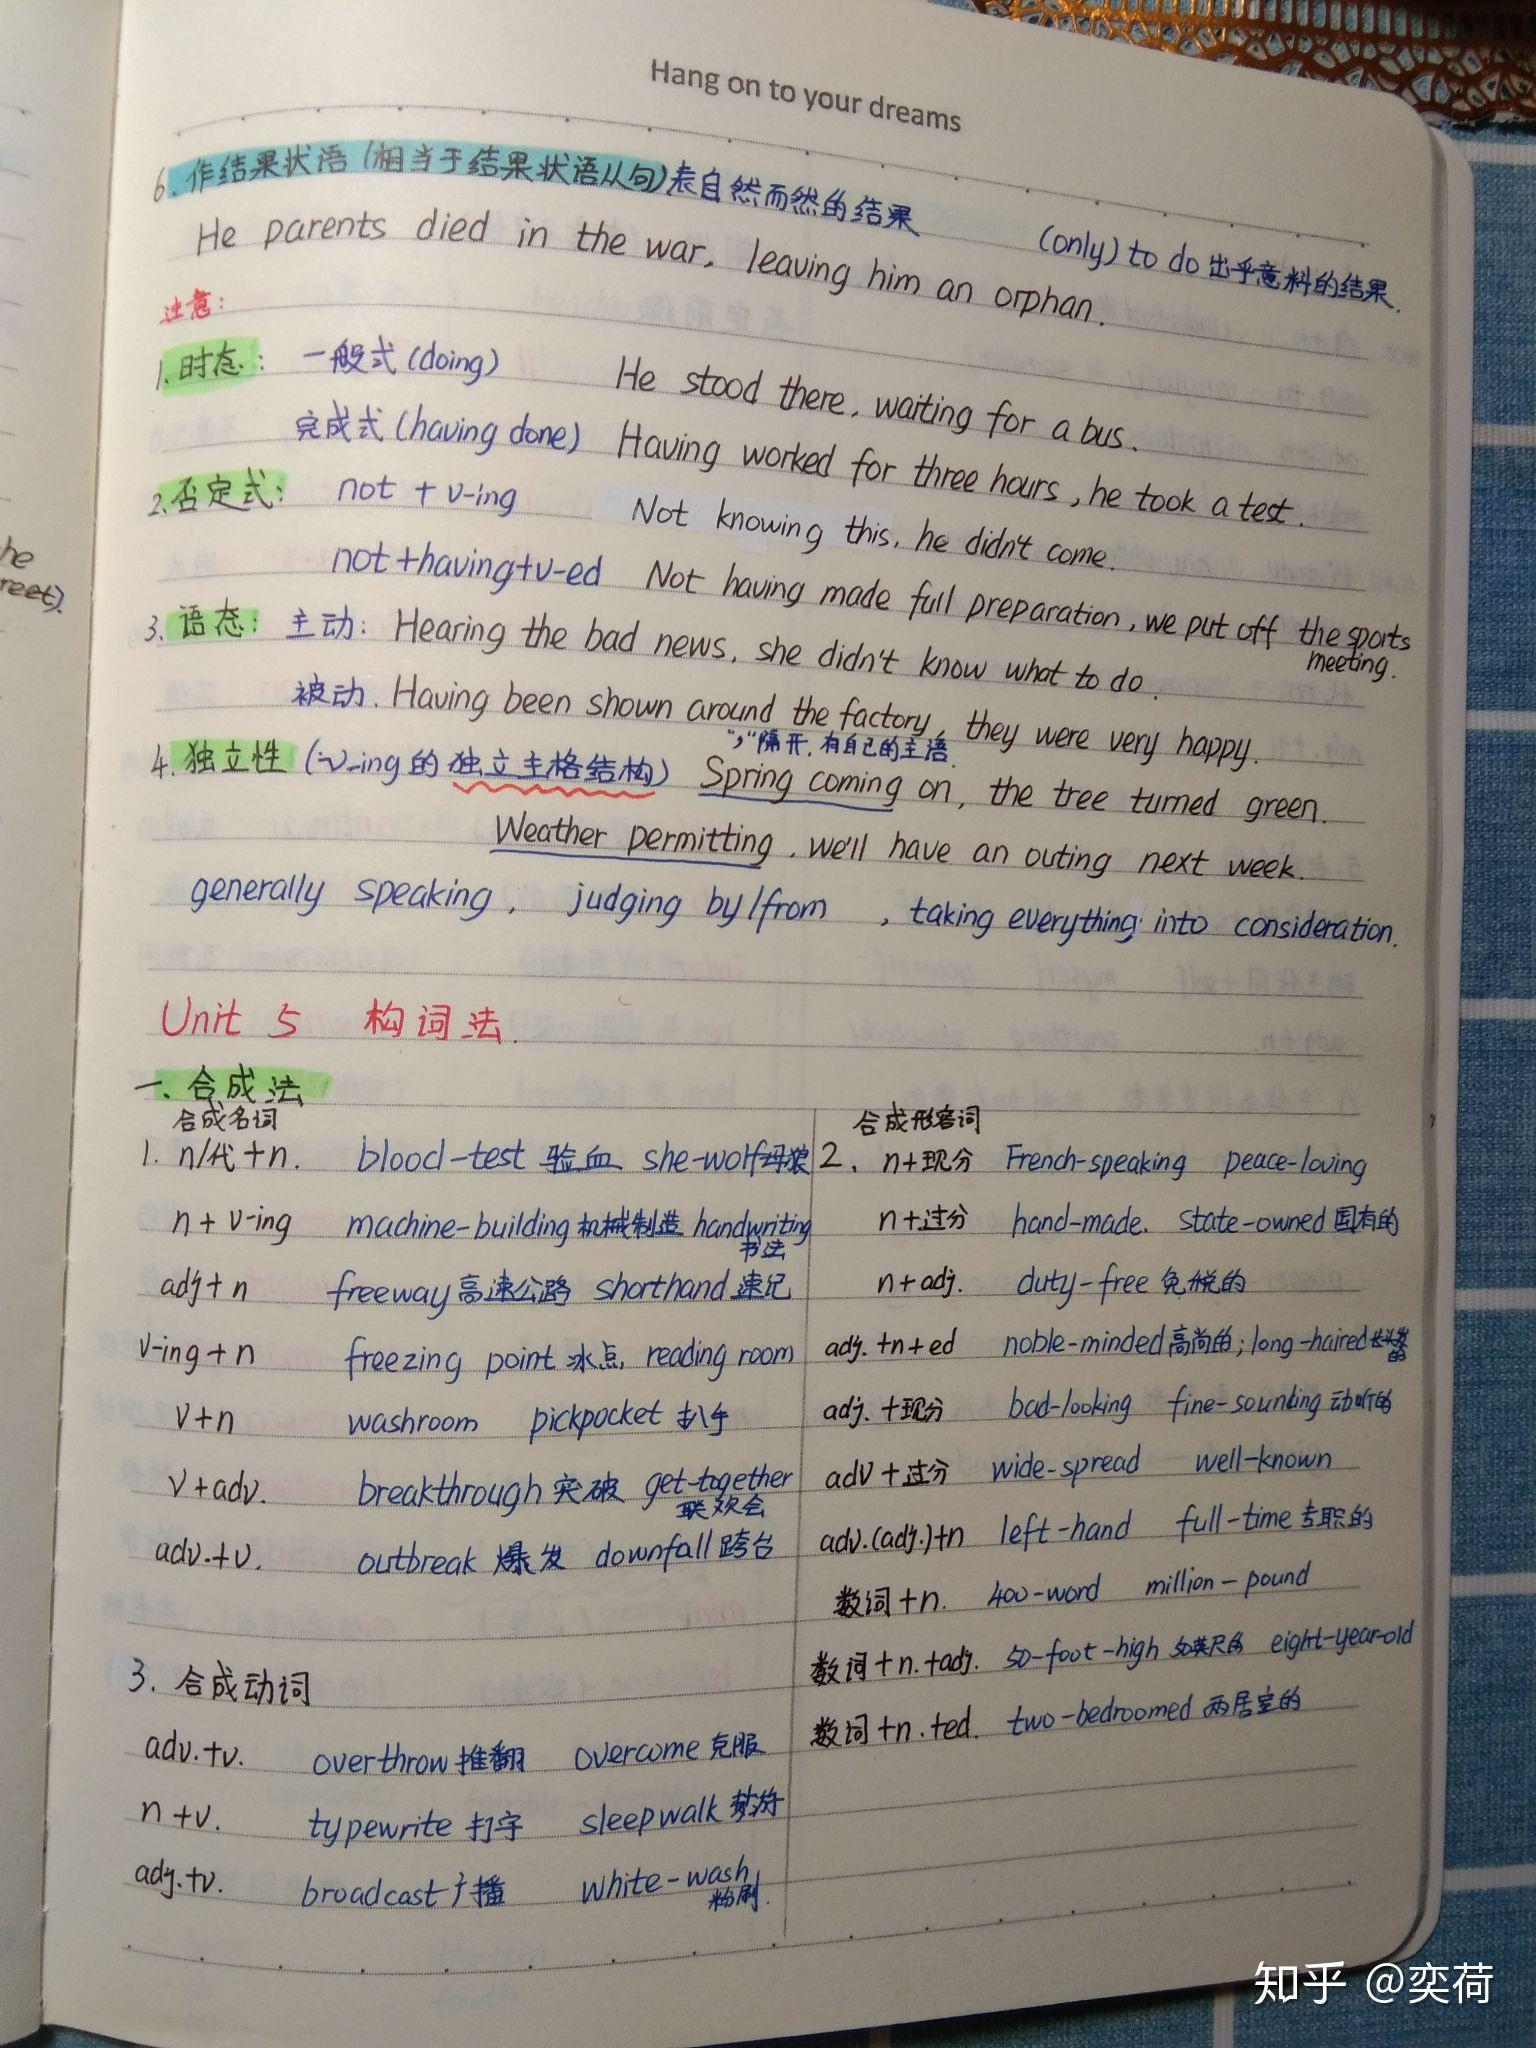 Hang on to your dreams
6. 作结果状语 (相当于结果状语从句) 表自然而然的结果
(only) to do 出乎意料的结果.
He parents died in the war, leaving him an orphan.
注意:
1. 时态: 一般式 (doing) He stood there, waiting for a bus.
完成式 (having done) Having worked for three hours, he took a test.
2. 否定式: not + v-ing Not knowing this, he didn't come.
not+having+v-ed Not having made full preparation, we put off the sports meeting.
3. 语态: 主动: Hearing the bad news, she didn't know what to do.
被动. Having been shown around the factory, they were very happy.
"," 隔开, 有自己的主语.
4. 独立性 (v-ing 的 独立主格结构) Spring coming on, the tree turned green.
Weather permitting, we'll have an outing next week.
generally speaking, judging by/from , taking everything into consideration.
he
reet).
Unit 5 构词法.
一. 合成法
合成名词
1. n/代+n. blood-test 验血 she-wolf 母狼
n + v-ing machine-building 机械制造 handwriting 书法
adj + n freeway 高速公路 shorthand 速记
v-ing + n freezing point 冰点, reading room
v+n washroom pickpocket 扒手
v+adv. breakthrough 突破 get-together 联欢会
adv.+v. outbreak 爆发 downfall 跨台
合成形容词
2. n+现分 French-speaking peace-loving
n+过分 hand-made. state-owned 国有的
n+adj. duty-free 免税的
adj. +n+ed noble-minded 高尚的; long-haired 长头发的
adj. +现分 bad-looking fine-sounding 动听的
adv +过分 wide-spread well-known
adv.(adj.)+n left-hand full-time 专职的
数词+n. 400-word million-pound
数词+n.+adj. 50-foot-high 50英尺的 eight-year-old
数词+n.+ed. two-bedroomed 两居室的
3. 合成动词
adv.+v. overthrow 推翻 overcome 克服
n+v. typewrite 打字 sleepwalk 梦游
adj.+v. broadcast 广播 white-wash 粉刷.
知乎 @奕荷